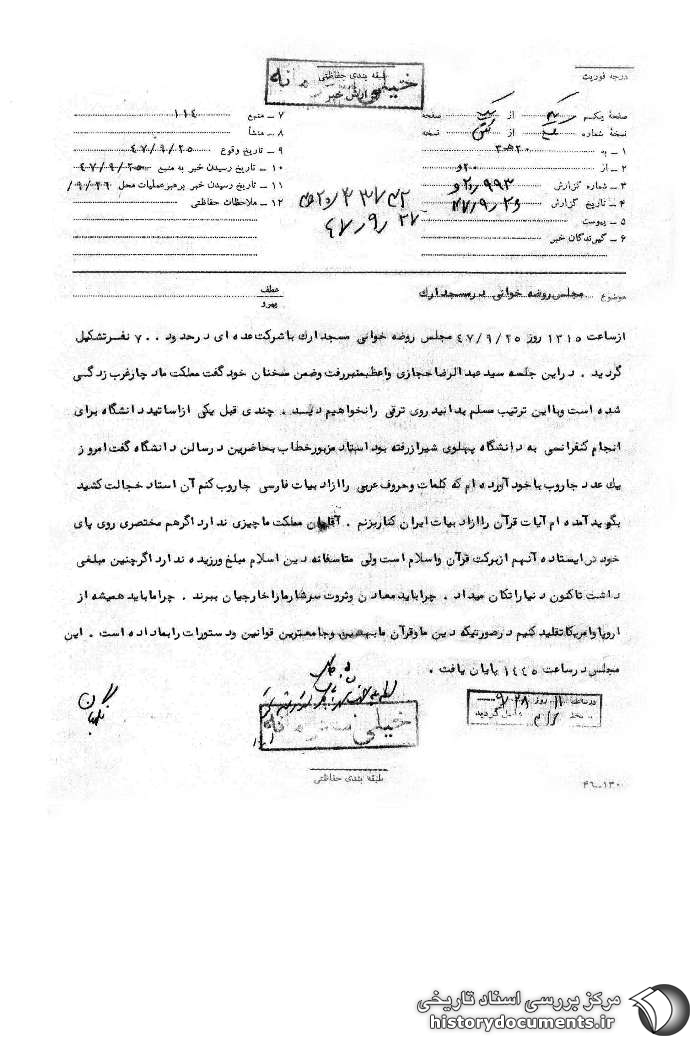 درجه فوریت
طبقه بندی حفاظتی
خیلی محرمانه
گزارش خبر
صفحهٔ یکم از یک صفحه
نسخهٔ شماره از نسخه
۱ ــ به ۳۰هـ۲۰
۲ ــ از ۲۰و
۳ ــ شماره گزارش
۴ ــ تاریخ گزارش ۴۷/۹/۲۶
۵ ــ پیوست
۶ ــ گیرندگان خبر
۷ ــ منبع ۱۱۴
۸ ــ منشأ
۹ ــ تاریخ وقوع ۴۷/۹/۲۵
۱۰ ــ تاریخ رسیدن خبر به منبع ۴۷/۹/۲۵
۱۱ ــ تاریخ رسیدن خبر برهبرعملیات محل ۹/۲۶/
۱۲ ــ ملاحظات حفاظتی
۴۷/۹/۲۷
موضوع مجلس روضه خوانی در مسجد ارك
عطف
پیرو
ازساعت ۱۳۱۵ روز ۴۷/۹/۲۵ مجلس روضه خوانی مسجد ارك با شرکت عده ای در حدود ۷۰۰ نفر تشکیل
گردید . در این جلسه سید عبد الرضا حجازی واعظ بمنبر رفت وضمن سخنان خود گفت مملکت ما دچار غرب زدگی
شده است وبا این ترتیب مسلم بدانید روی ترقی را نخواهیم دید . چندی قبل یکی از اساتید دانشگاه برای
انجام کنفرانسی به دانشگاه پهلوی شیراز رفته بود استاد مزبور خطاب بحاضرین در سالن دانشگاه گفت امروز
یك عدد جاروب با خود آورده ام که کلمات وحروف عربی را از ادبیات فارسی جاروب کنم آن استاد خجالت کشید
بگوید آمده ام آیات قرآن را از ادبیات ایران کنار بزنم . آقایان مملکت ما چیزی ندارد اگر هم مختصری روی پای
خود در ایستاده آنهم از برکت قرآن واسلام است ولی متاسفانه دین اسلام مبلغ ورزیده ندارد اگر چنین مبلغی
داشت تاکنون دنیا را تکان میداد . چرا باید معادن وثروت سرشار ما را خارجیان ببرند . چرا ما باید همیشه از
اروپا وامریکا تقلید کنیم در صورتیکه دین ما وقرآن ما بهترین وجامعترین قوانین ودستورات را بما داده است . این
مجلس در ساعت ۱۴۴۵ پایان یافت .
خیلی محرمانه
در ساعت ۱۱ روز ۹/۲۸
به بخش واصل گردید
طبقه بندی حفاظتی
۴۶ــ۱۳۰
مرکز بررسی اسناد تاریخی
historydocuments.ir